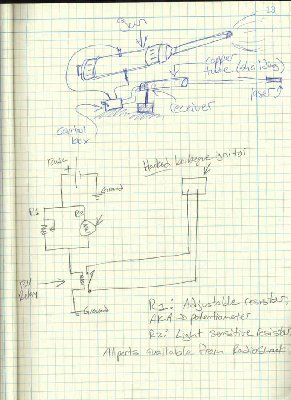 13
Gun
copper
tube (shielding)
laser
receiver
control
box
Power
+
-
Ground
Hacked barbeque ignitor
R1
R2
5V
Relay
Ground
R1: Adjustable resistor,
AKA potentiometer
R2: Light sensitive resistor
All parts available from RadioShack